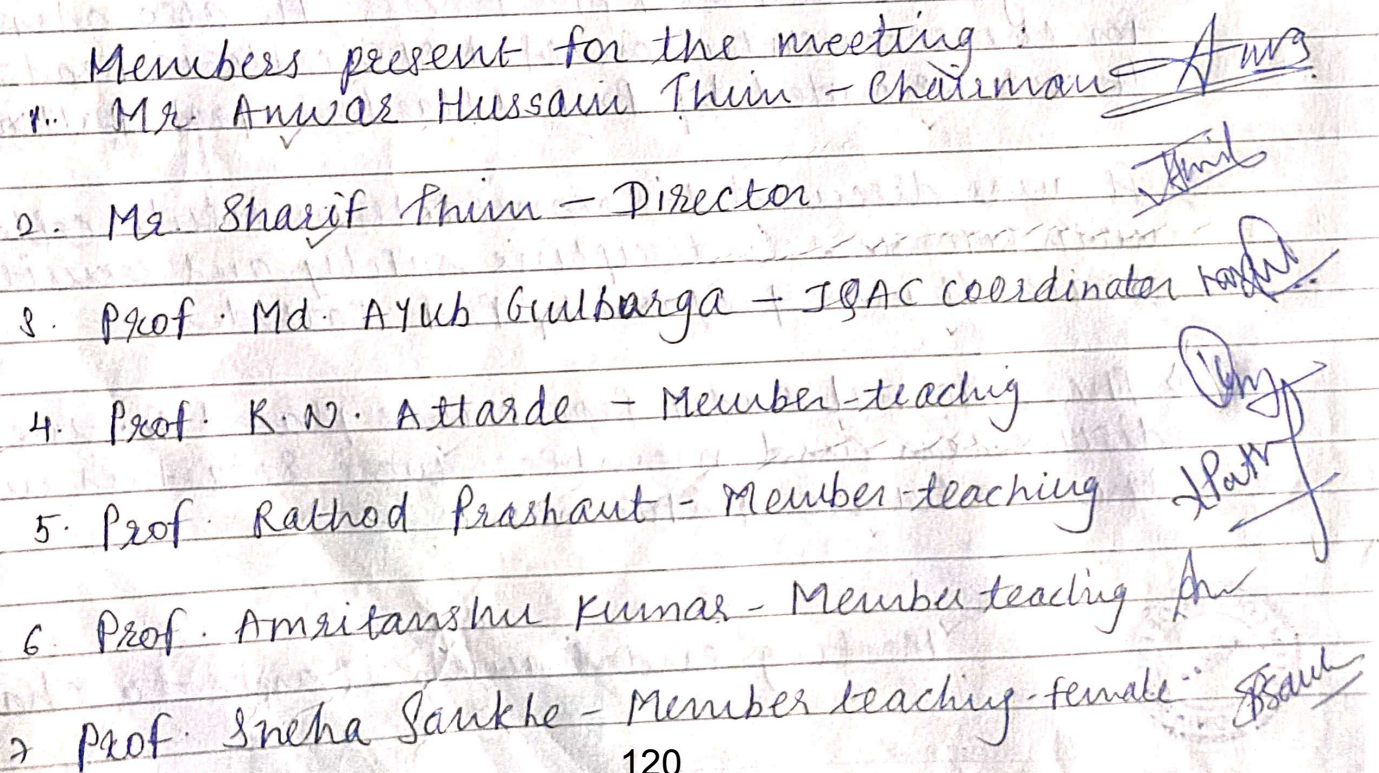 Members present for the meeting :
1. Mr. Anwar Hussain Thim - Chairman
2. Mr. Sharif Thim - Director
3. Prof. Md. Ayub Gulbarga - IQAC coordinator
4. Prof. K.N. Attarde - Member-teachig
5. Prof. Rathod Prashant - Member-teaching
6. Prof. Amritanshu Kumar - Member teaching
7 Prof. Sneha Sankhe - Member teaching-female
120